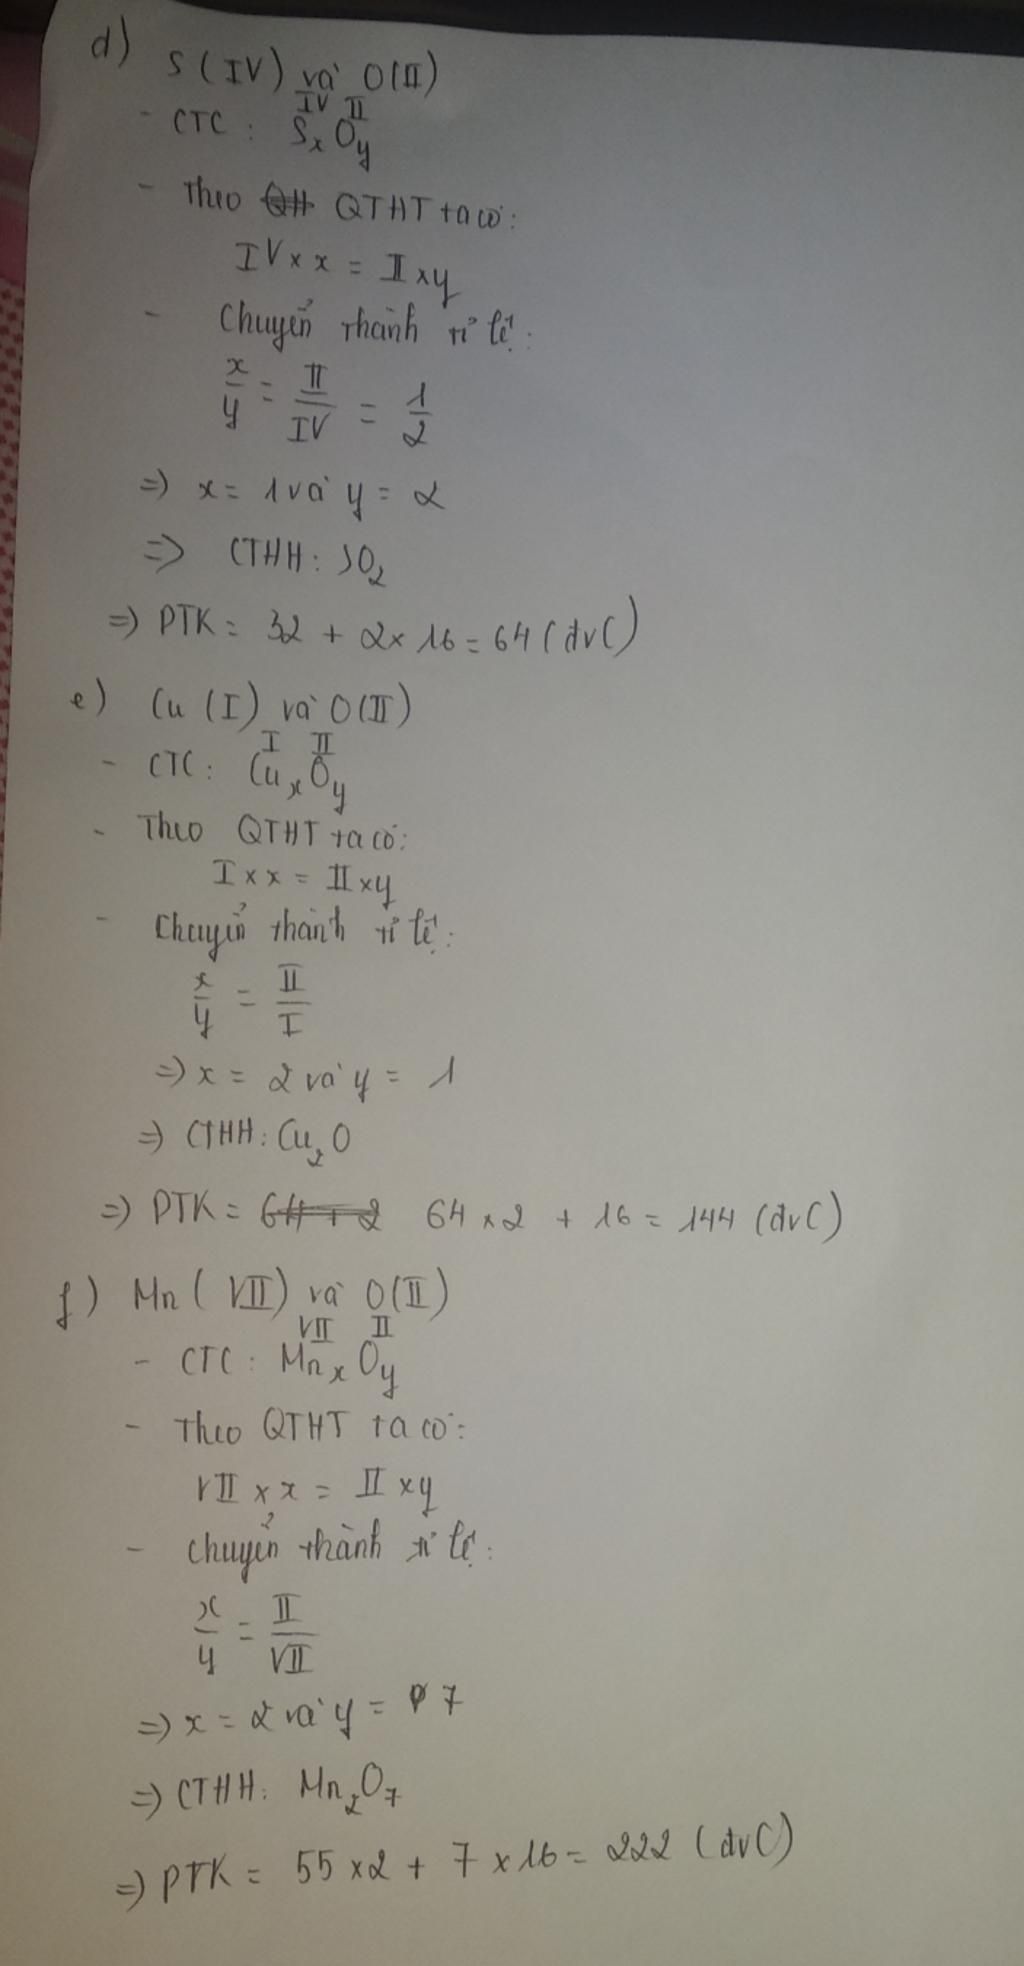 d) S (IV) và O(II)
IV II
- CTC : SxOy
- Theo QH QTHT ta có:
IV x x = II x y
- Chuyển thành tỉ lệ:
x/y = II/IV = 1/2
=> x = 1 và y = 2
=> CTHH: SO2
=> PTK = 32 + 2 x 16 = 64 (đvC)
e) Cu (I) và O(II)
I II
- CTC: CuxOy
- Theo QTHT ta có:
I x x = II x y
- Chuyển thành tỉ lệ:
x/y = II/I
=> x = 2 và y = 1
=> CTHH: Cu2O
=> PTK = 64 + 2 64 x 2 + 16 = 144 (đvC)
f) Mn (VII) và O(II)
VII II
- CTC: MnxOy
- Theo QTHT ta có:
VII x x = II x y
- Chuyển thành tỉ lệ:
x/y = II/VII
=> x = 2 và y = 7
=> CTHH: Mn2O7
=> PTK = 55 x 2 + 7 x 16 = 222 (đvC)